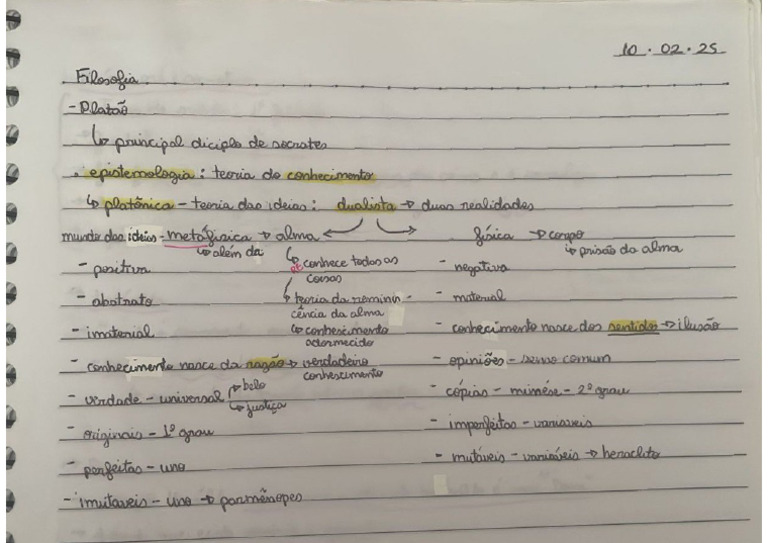 10.02.25
Filosofia
- Platão
↳ principal díciplo de socrates
. epistemologia : teoria do conhecimento
↳ platônica - teoria das ideias : dualista → duas realidades
mundo das ideias - metafísica → alma física → corpo
↳ além da ↳ prisão da alma
- positiva ↳ conhece todas as coisas - negativa
- abstrato ↳ teoria da reminiscência da alma - material
- imaterial ↳ conhescimento adormecido - conhecimento nasce dos sentidos → ilusão
- conhecimento nasce da razão → verdadeiro conhescimento - opiniões - senso comum
- verdade - universal → belo → justiça - cópias - mimése - 2º grau
- originais - 1º grau - imperfeitas - variaveis
- perfeitas - uno - mutáveis - variáveis → heraclito
- imutaveis - uno → parmênopes